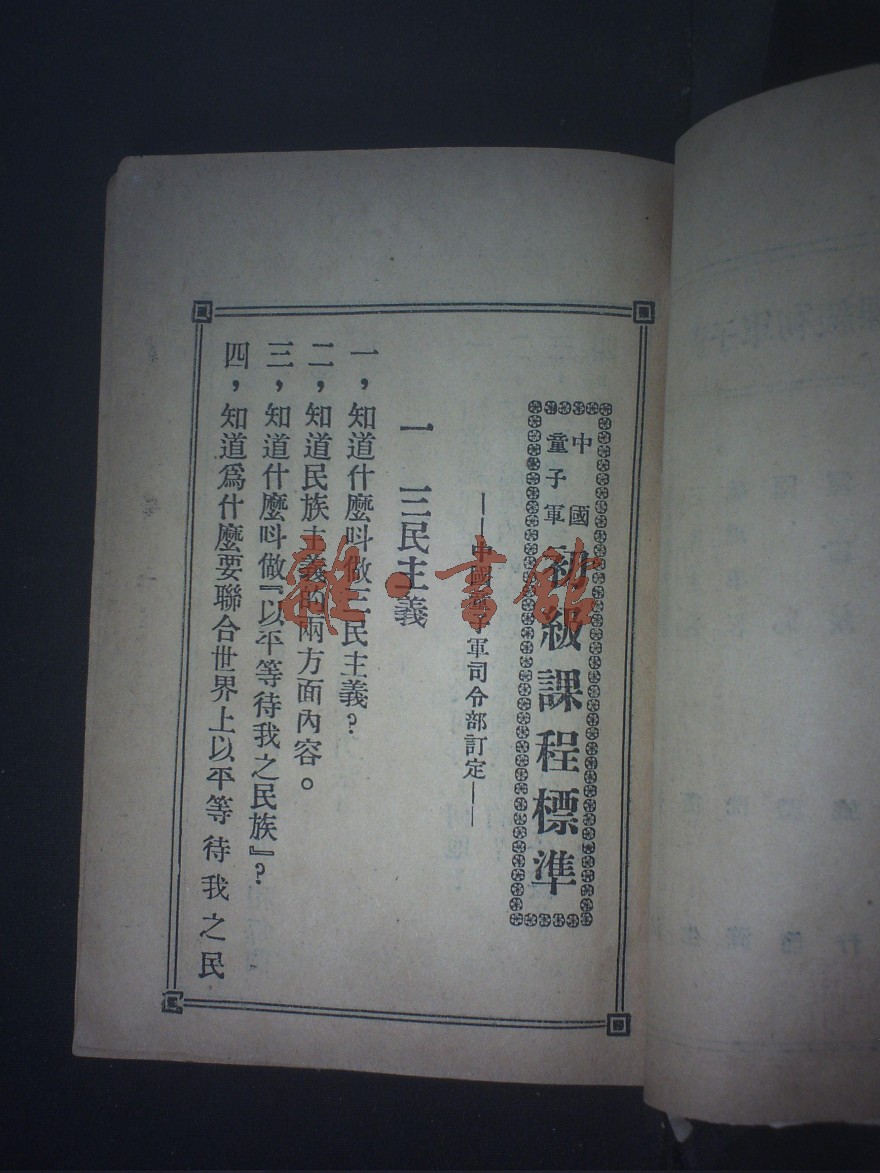 中國
童子軍
初級課程標準
——中國童子軍司令部訂定——
一 三民主義
一，知道什麼叫做三民主義？
二，知道民族主義的兩方面內容。
三，知道什麼叫做『以平等待我之民族』？
四，知道爲什麼要聯合世界上以平等待我之民
雜·書館